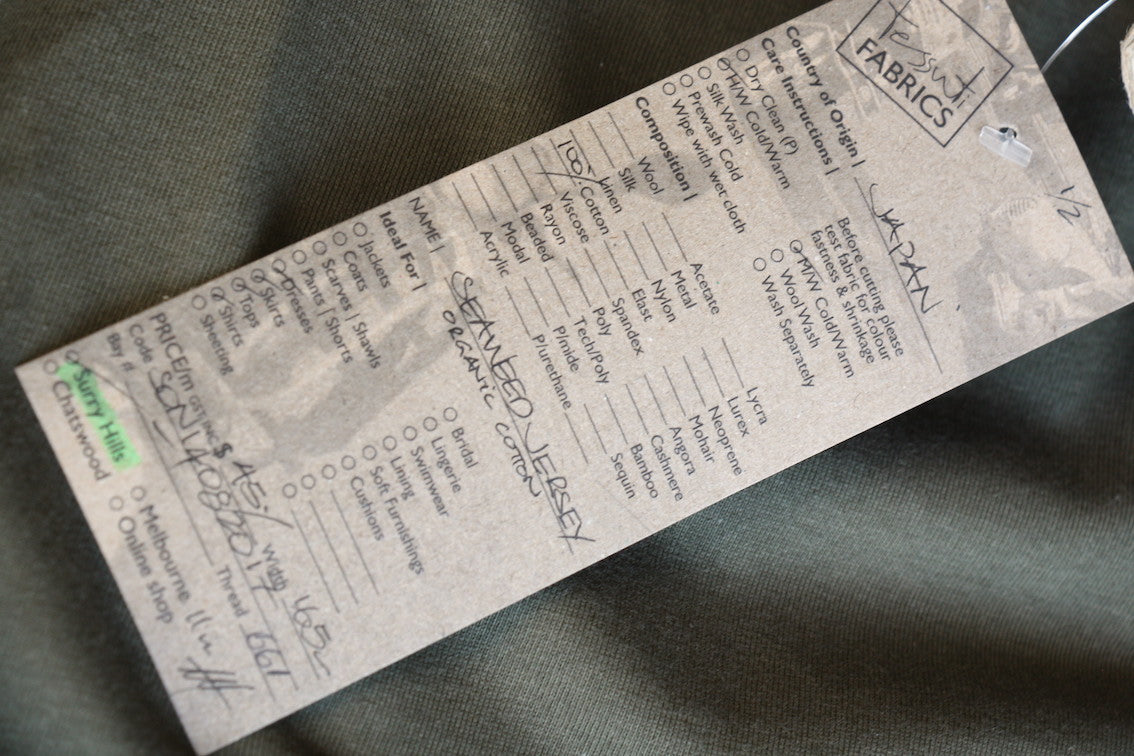 tessuti
FABRICS
1/2
Country of Origin | JAPAN
Care Instructions |
Dry Clean (P)
H/W Cold/Warm
Silk Wash
Prewash Cold
Wipe with wet cloth
Before cutting please
test fabric for colour
fastness & shrinkage
M/W Cold/Warm
Wool Wash
Wash Separately
Composition |
Wool
Silk
Linen
100% Cotton
Viscose
Rayon
Beaded
Modal
Acrylic
Acetate
Metal
Nylon
Elast
Spandex
Poly
Tech/Poly
P/mide
P/urethane
Lycra
Lurex
Neoprene
Mohair
Angora
Cashmere
Bamboo
Sequin
NAME | SEAWEED JERSEY
ORGANIC COTTON
Ideal For |
Jackets
Coats
Scarves | Shawls
Pants | Shorts
Dresses
Skirts
Tops
Shirts
Sheeting
Bridal
Lingerie
Swimwear
Lining
Soft Furnishings
Cushions
PRICE/m GST INC $ 45/ Width 165
Code SCN14082017 Thread 661
Buy #
Surry Hills
Chatswood
Melbourne
Online shop
11m